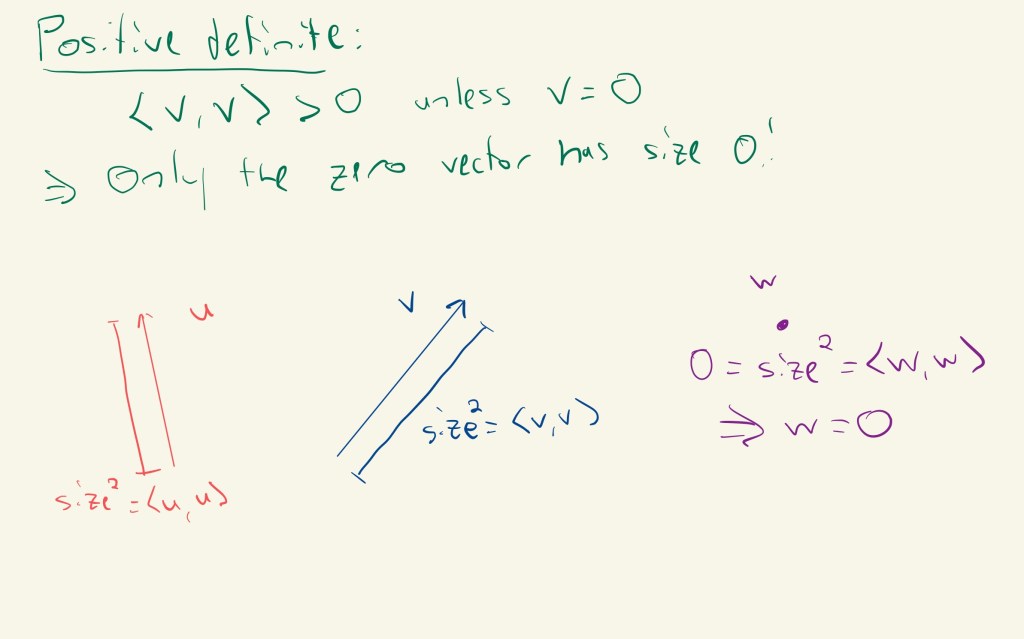 Positive definite:
⟨v,v⟩ > 0 unless v = 0
⇒ Only the zero vector has size 0!
u
size² = ⟨u,u⟩
v
size² = ⟨v,v⟩
w
0 = size² = ⟨w,w⟩
⇒ w = 0